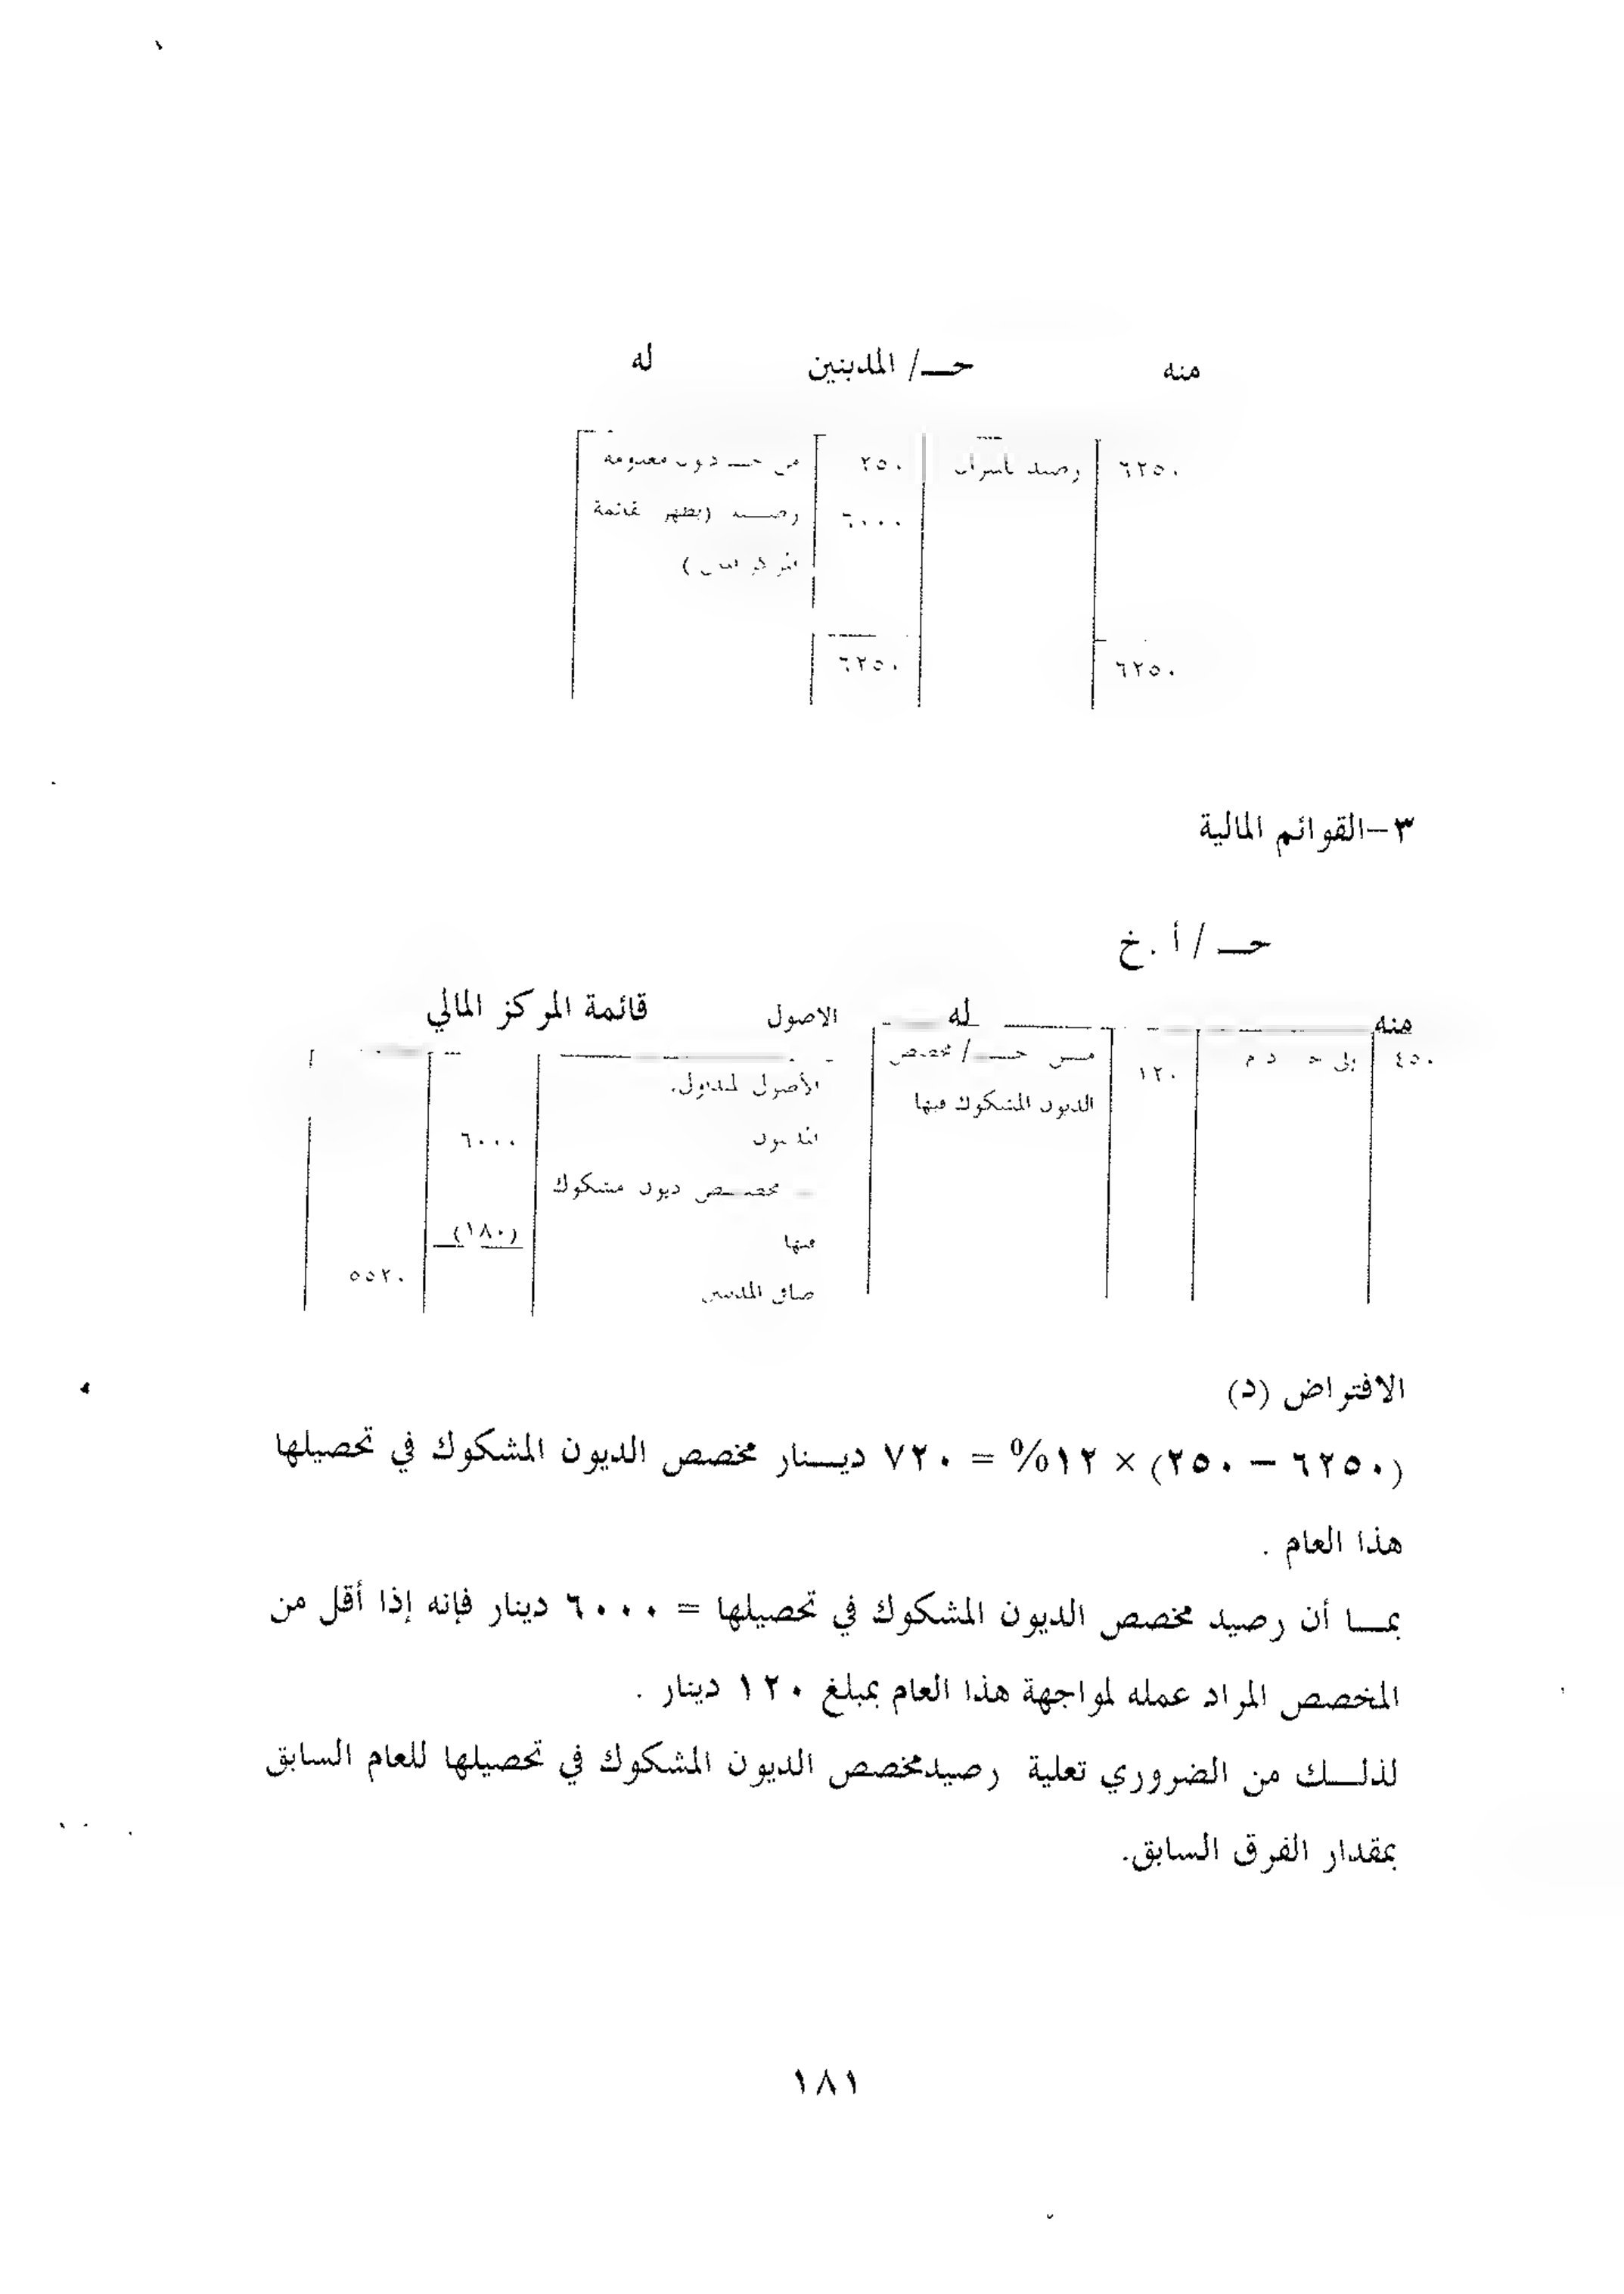 منه حــ/ المدينين له
٦٢٥٠ رصيد ٢٥٠ من حـــ معدومة
٦٠٠٠ رصـــيد (يظهر بقائمة
٦٢٥٠ ٦٢٥٠
٣-القوائم المالية
حــ / أ .خ
منه له
٤٥٠ ١٢٠ مــن حــــ/ مخصص
الديون المشكوك فيها
الاصول قائمة المركز المالي
الأصول المتداولة
٦٠٠٠
- مخصــص ديون مشكوك
فيها (١٨٠)
صافي المدينين ٥٥٢٠
الافتراض (د)
(٦٢٥٠ – ٢٥٠) × ١٢% = ٧٢٠ ديـــنار مخصص الديون المشكوك في تحصيلها
هذا العام .
بمـــا أن رصيد مخصص الديون المشكوك في تحصيلها = ٦٠٠٠ دينار فإنه إذا أقل من
المخصص المراد عمله لمواجهة هذا العام بمبلغ ١٢٠ دينار .
لذلـــك من الضروري تعلية رصيدمخصص الديون المشكوك في تحصيلها للعام السابق
بمقدار الفرق السابق.
١٨١